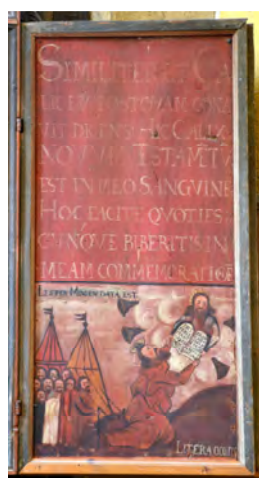 SIMILITER ET CA
LICEM POSTQVAM COENA
VIT DICENS HIC CALIX
NOVVM TESTAMẼTV̄
EST IN MEO SANGVINE
HOC FACITE QVOTIES
CVNQVE BIBERITIS IN
MEAM COMMEMORATIOÊ
LEX PER MOSEN DATA EST.
LITERA OCCI